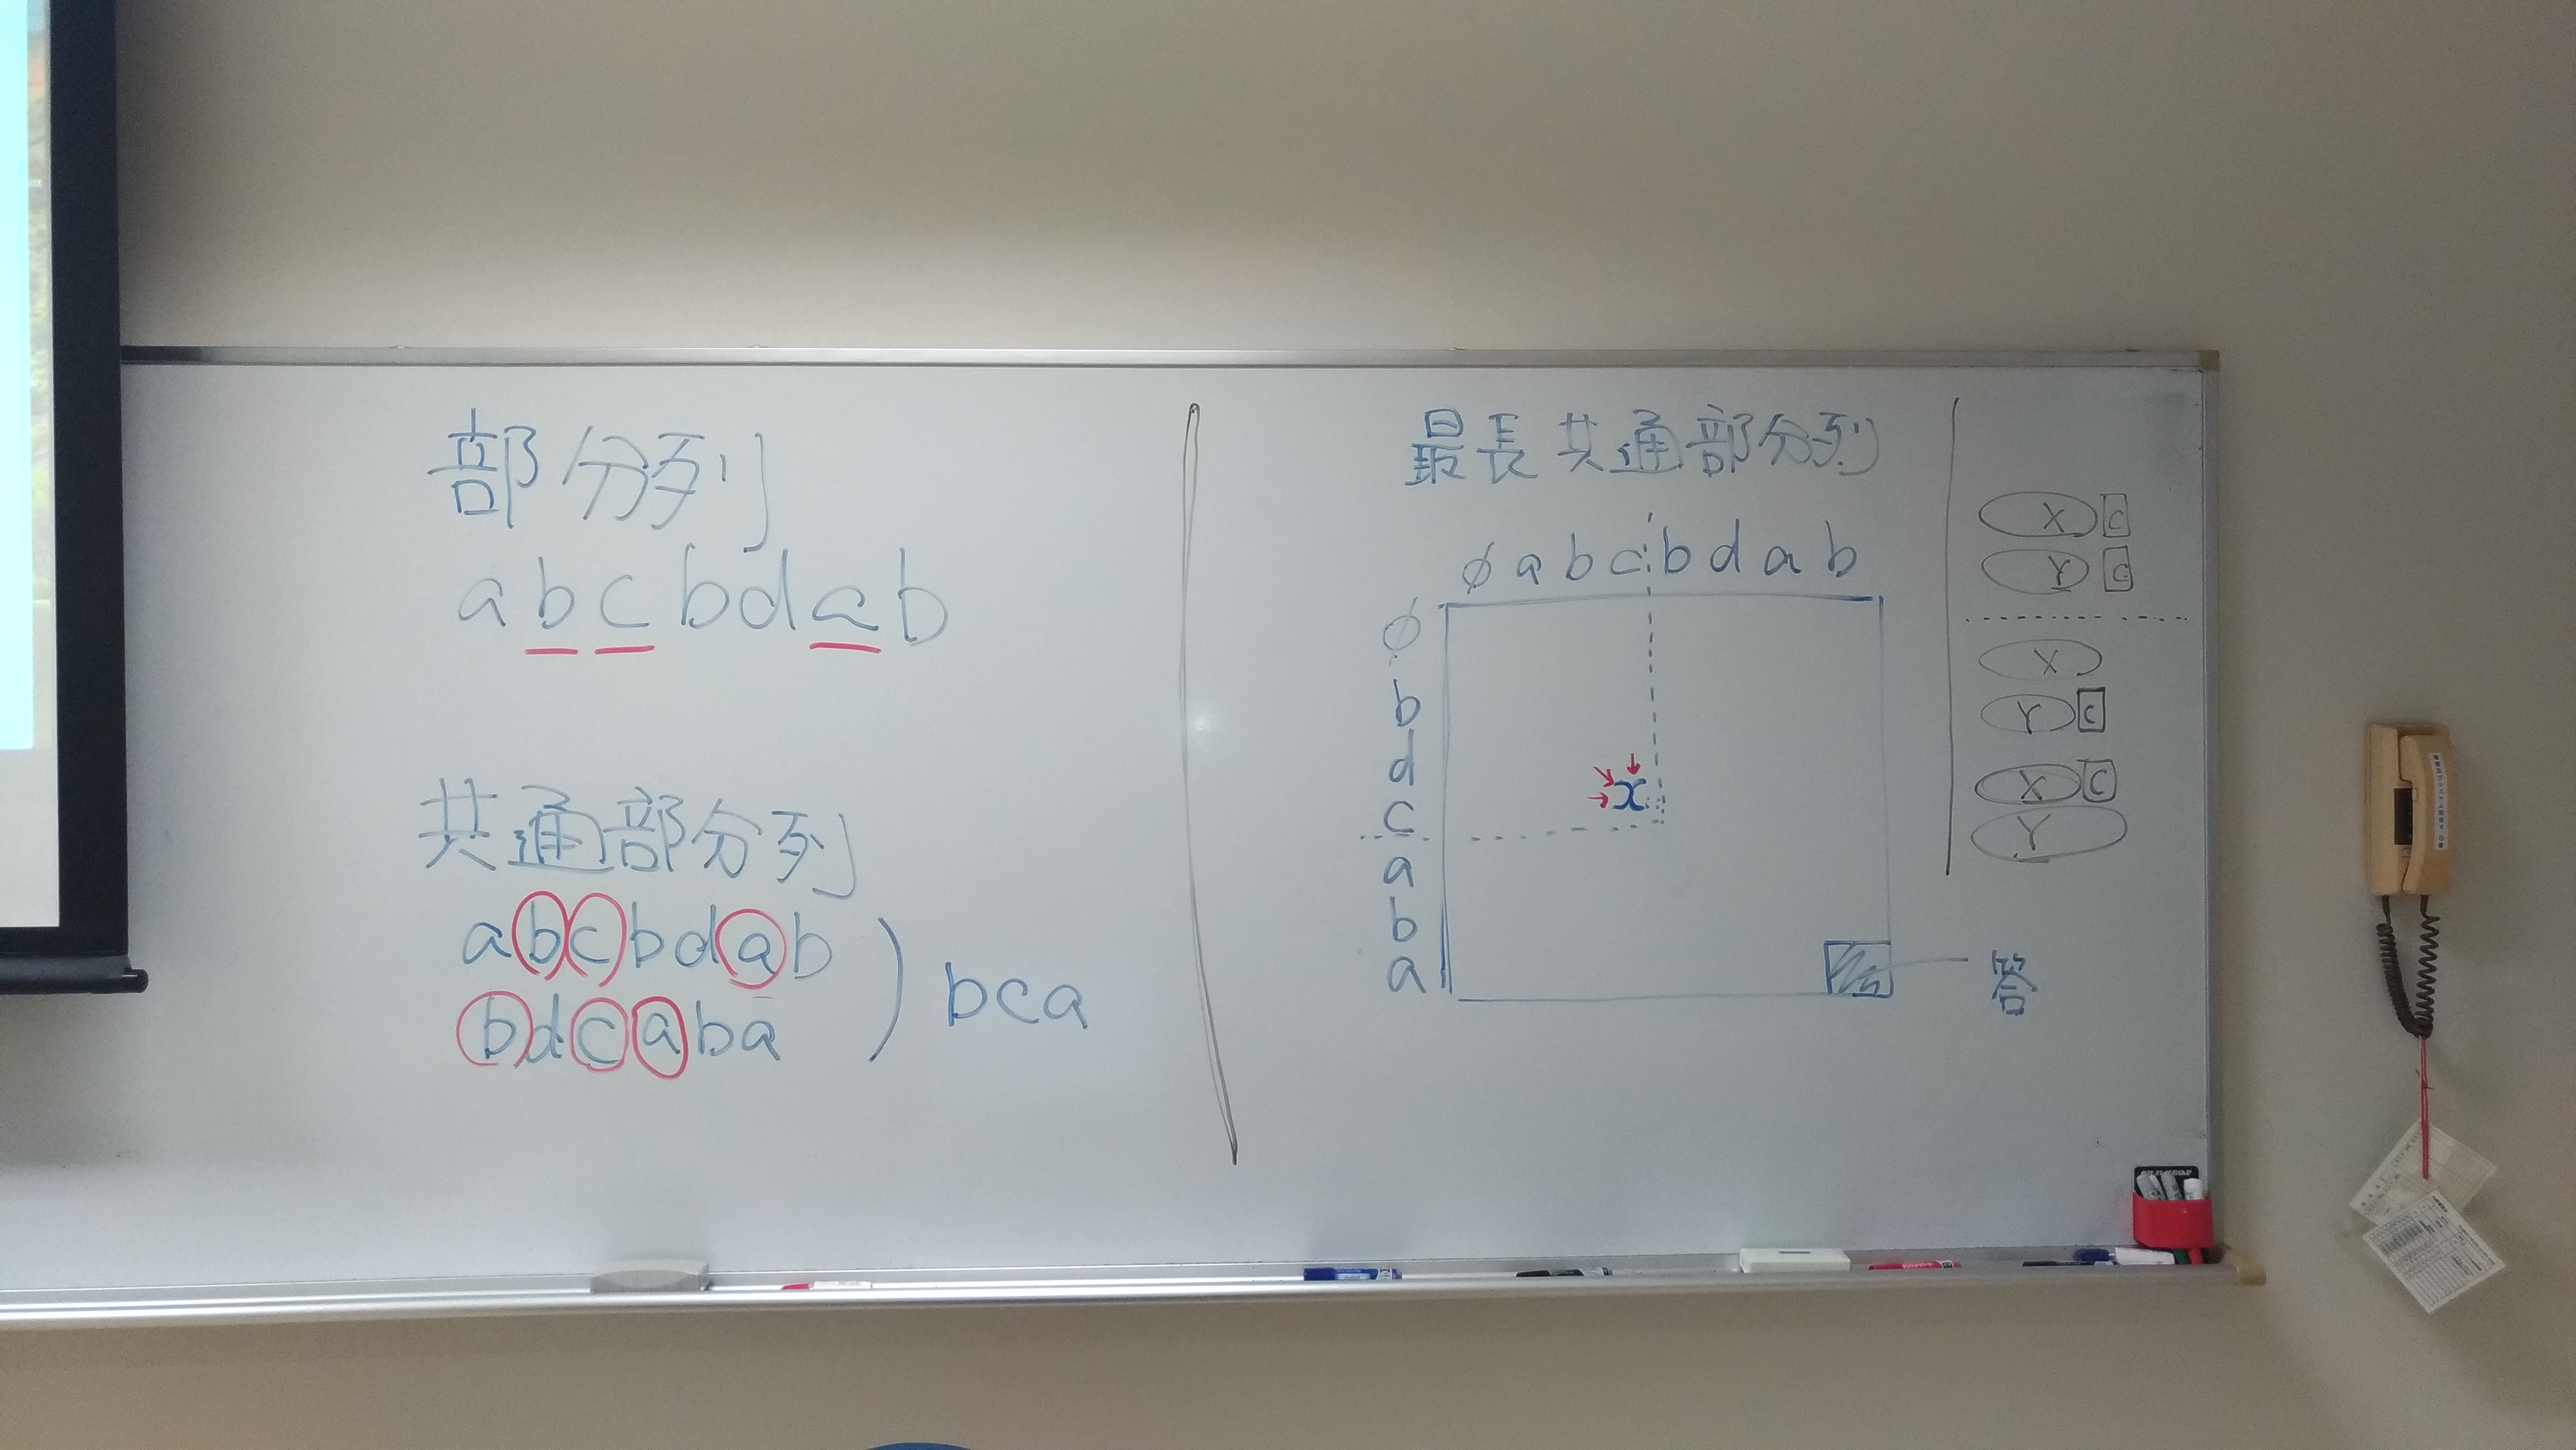 部分列
abcbdab
共通部分列
abcbdab
bdcaba
bca
最長共通部分列
φabcbdab
φ
b
d
c
x
a
b
a
答
X C
Y C
X
Y C
X C
Y